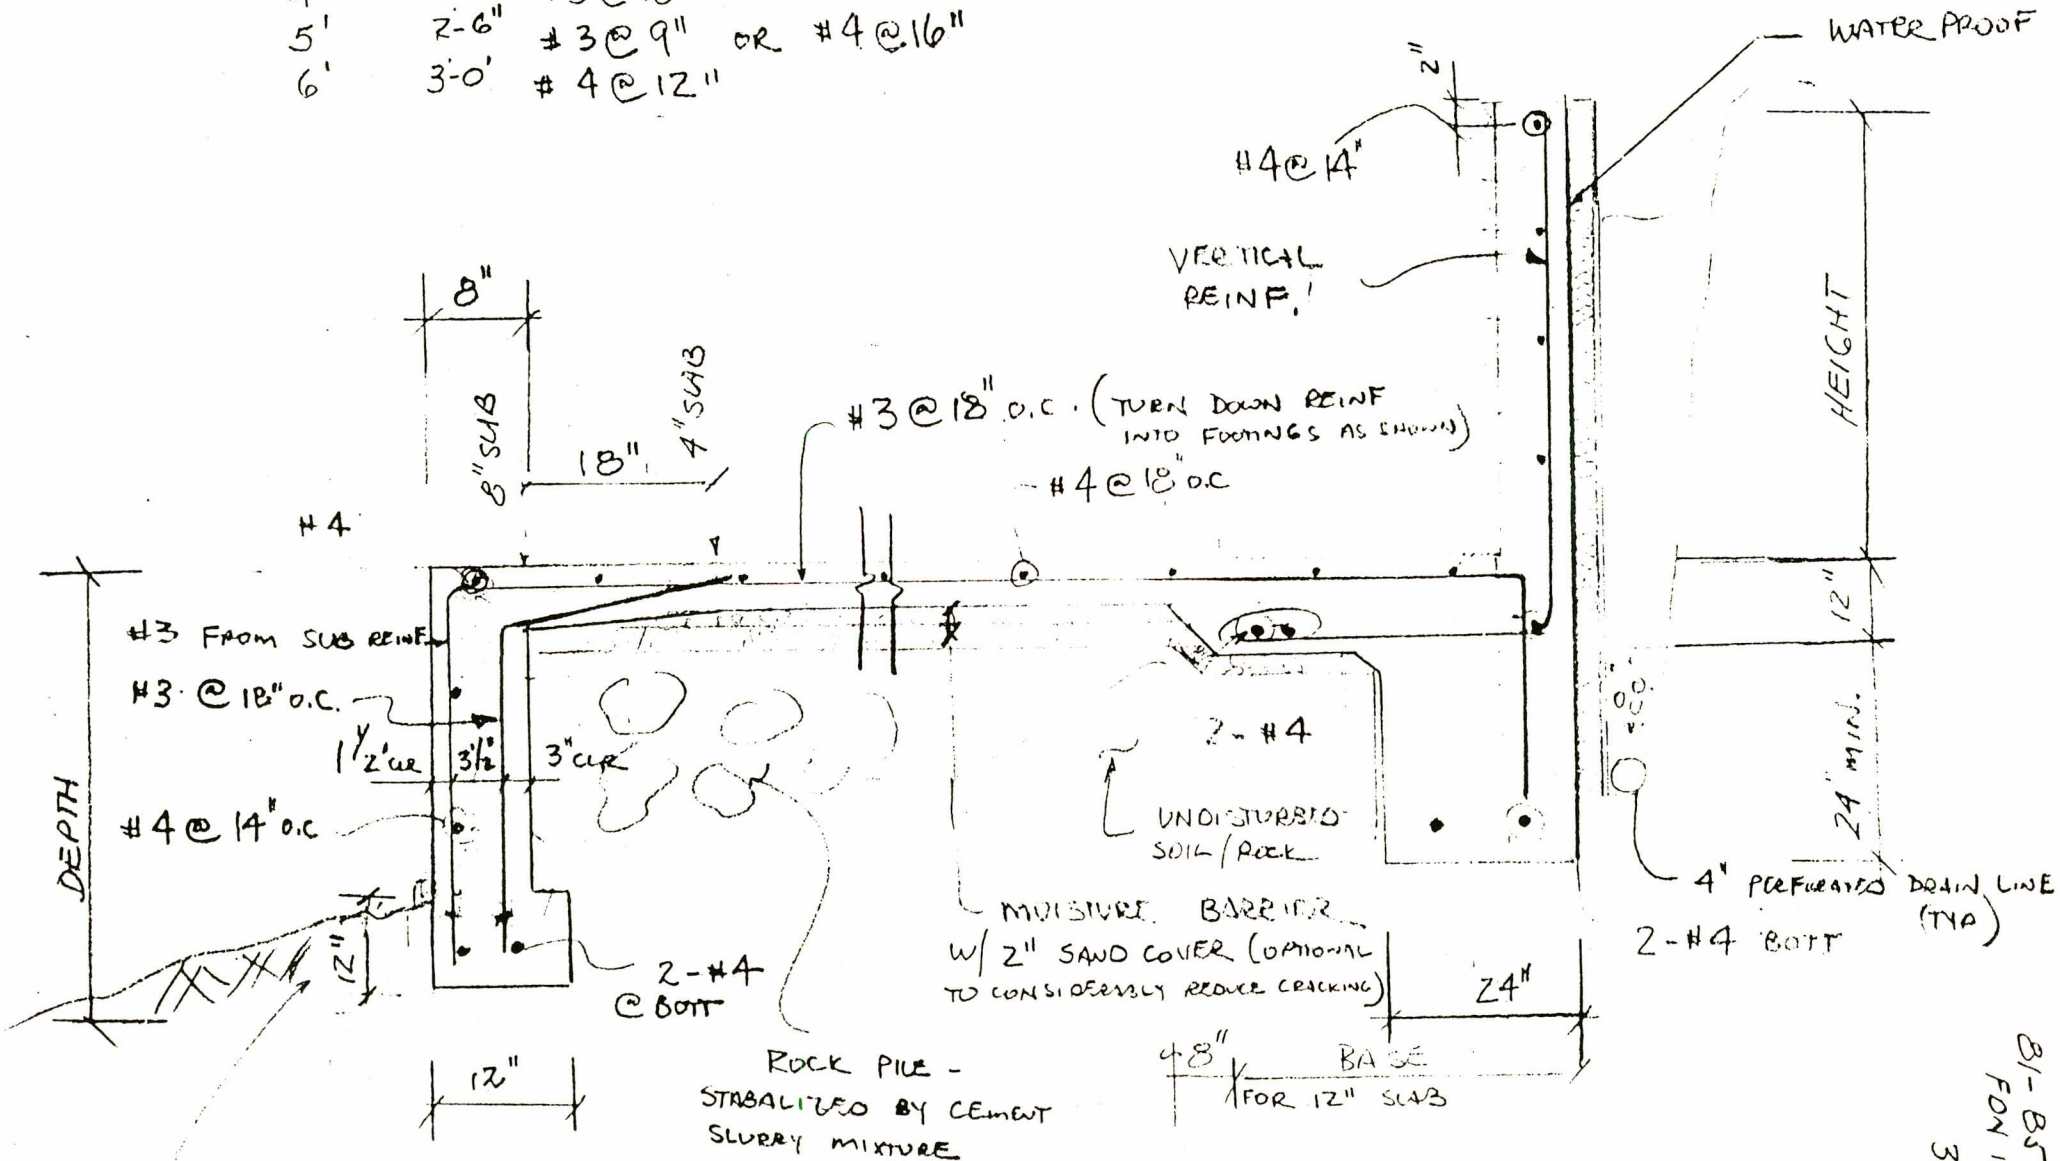 5' 2-6" #3@9" OR #4@16"
6' 3-0' #4@12"
WATER PROOF
2"
#4@14"
VERTICAL
REINF.
HEIGHT
8"
8" SLAB
18"
4" SLAB
#3@18" O.C. (TURN DOWN REINF
INTO FOOTINGS AS SHOWN)
#4@18" O.C
#4
12"
#3 FROM SLAB REINF.
#3 @ 18" O.C.
1 1/2" CLR
3 1/2"
3" CLR
2-#4
24" MIN.
DEPTH
#4@14" O.C
UNDISTURBED
SOIL/ROCK
4" PERFORATED DRAIN LINE
(TYP)
12"
MOISTURE BARRIER
W/ 2" SAND COVER (OPTIONAL
TO CONSIDERABLY REDUCE CRACKING)
2-#4 BOTT
2-#4
@ BOTT
24"
12"
ROCK PILE -
STABALIZED BY CEMENT
SLURRY MIXTURE
8"
BASE
FOR 12" SLAB
81-85
FON
3